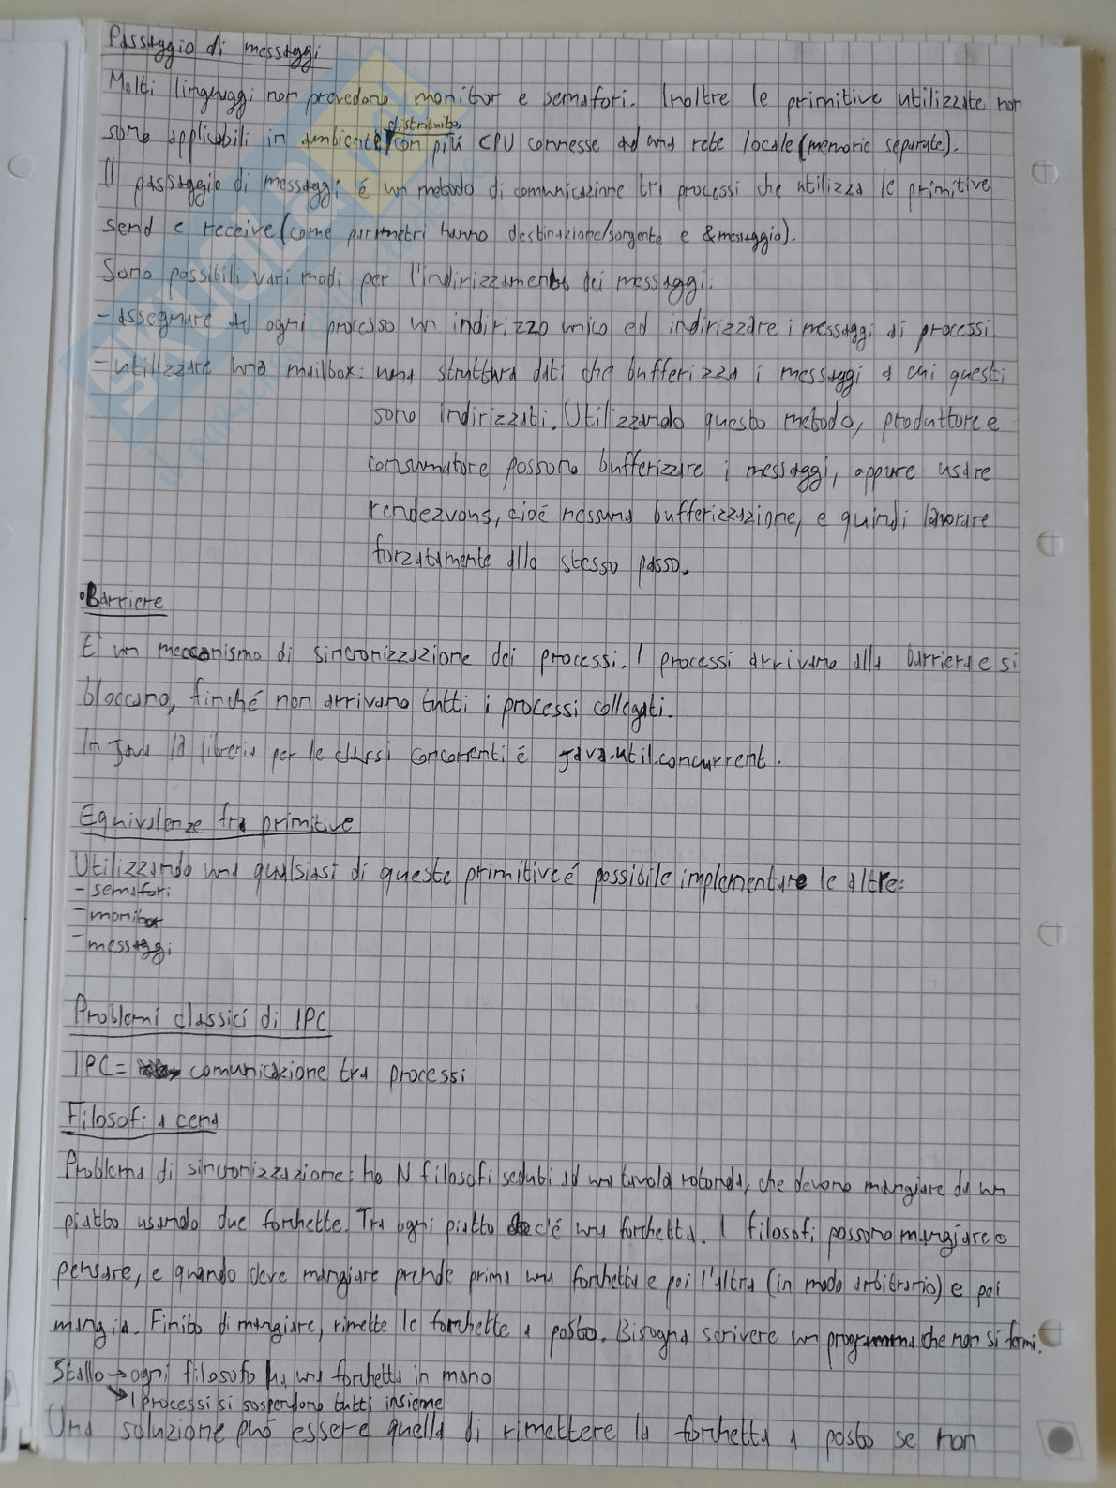 Passaggio di messaggi
Molti linguaggi non provedono monitor e semafori. Inoltre le primitive utilizzate non
distribuito
sono applicabili in ambiente con più CPU connesse ad una rete locale (memorie separate).
Il passaggio di messaggi é un metodo di comunicazione tra processi che utilizza le primitive
send e receive (come parametri hanno destinazione/sorgente e &messaggio).
Sono possibili vari modi per l'indirizzamento dei messaggi:
- assegnare ad ogni processo un indirizzo unico ed indirizzare i messaggi ai processi
- utilizzare una mailbox: una struttura dati che bufferizza i messaggi a cui questi
sono indirizzati. Utilizzando questo metodo, produttore e
consumatore possono bufferizzare i messaggi, oppure usare
rendezvous, cioé nessuna bufferizzazione, e quindi lavorare
forzatamente allo stesso passo.
• Barriere
E' un meccanismo di sincronizzazione dei processi. I processi arrivano alla barriera e si
bloccano, finché non arrivano tutti i processi collegati.
In Java la libreria per le classi concorrenti é java.util.concurrent.
Equivalenze fra primitive
Utilizzando una qualsiasi di queste primitive é possibile implementare le altre:
- semafori
- monitor
- messaggi
Problemi classici di IPC
IPC = comunicazione tra processi
Filosofi a cena
Problema di sincronizzazione: ho N filosofi seduti ad una tavola rotonda, che devono mangiare da un
piatto usando due forchette. Tra ogni piatto c'é una forchetta. I filosofi possono mangiare o
pensare, e quando deve mangiare prende prima una forchetta e poi l'altra (in modo arbitrario) e poi
mangia. Finito di mangiare, rimette le forchette a posto. Bisogna scrivere un programma che non si fermi.
Stallo → ogni filosofo ha una forchetta in mano
↘ I processi si sospendono tutti insieme
Una soluzione può essere quella di rimettere la forchetta a posto se non